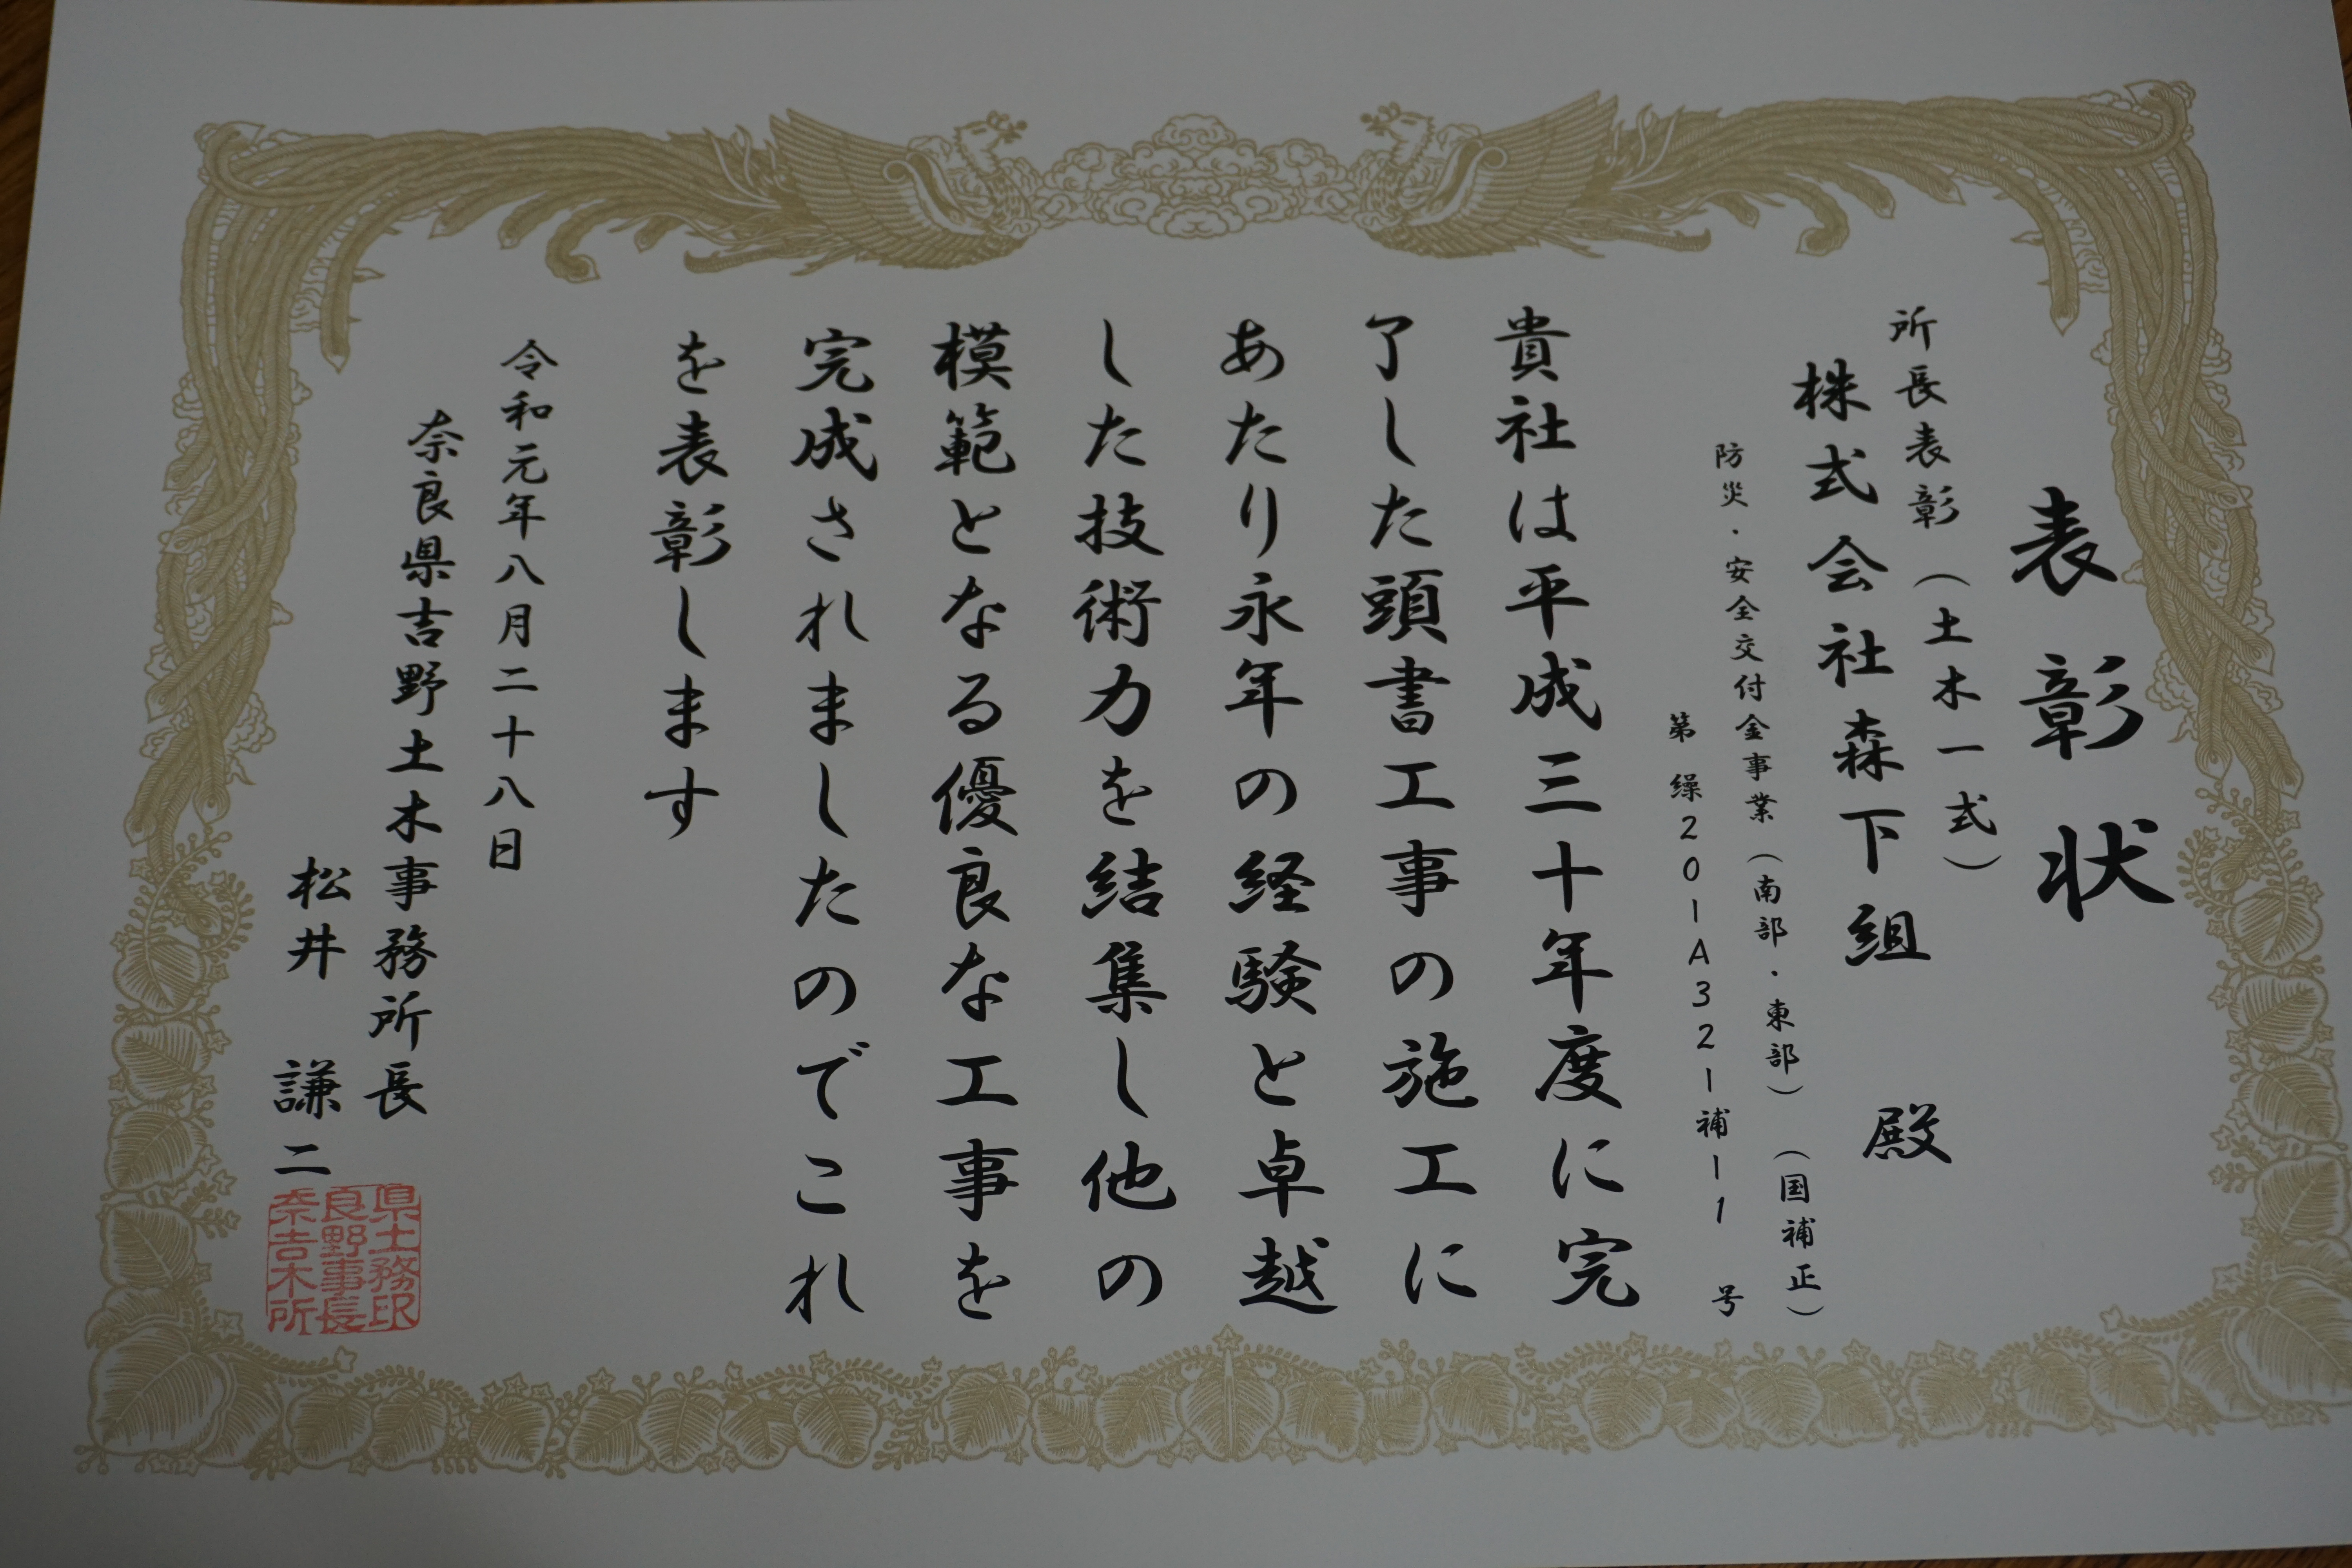 表彰状
所長表彰（土木一式）
株式会社森下組　殿
防災・安全交付金事業（南部・東部）（国補正）
第　繰201A321補11　号
貴社は平成三十年度に完
了した頭書工事の施工に
あたり永年の経験と卓越
した技術力を結集し他の
模範となる優良な工事を
完成されましたのでこれ
を表彰します
令和元年八月二十八日
奈良県吉野土木事務所長
松井　謙二
県土務印
良野事長
奈吉木所